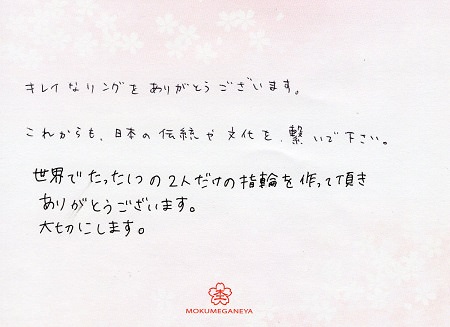 キレイなリングをありがとうございます。
これからも、日本の伝統や文化を、繋いで下さい。
世界でたった1つの2人だけの指輪を作って頂き
ありがとうございます。
大切にします。
MOKUMEGANEYA